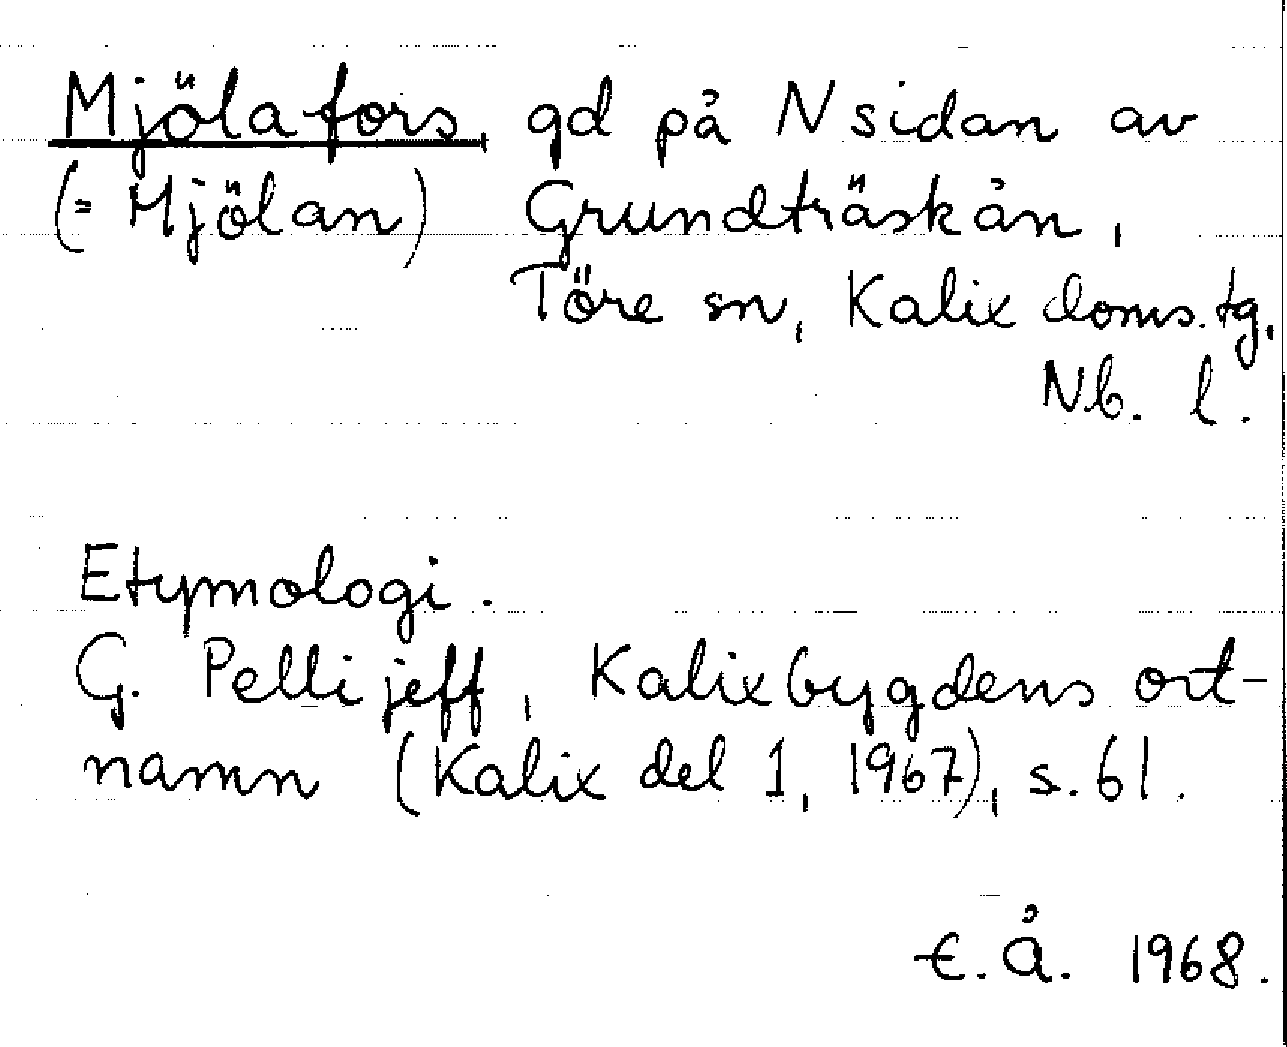 Mjölafors, gd på N sidan av
(= Mjölan) Grundträskån,
Töre sn, Kalix doms. tg,
Nb. l.
Etymologi.
G. Pellijeff, Kalixbygdens ort-
namn (Kalix del 1, 1967), s. 61.
E. Å. 1968.